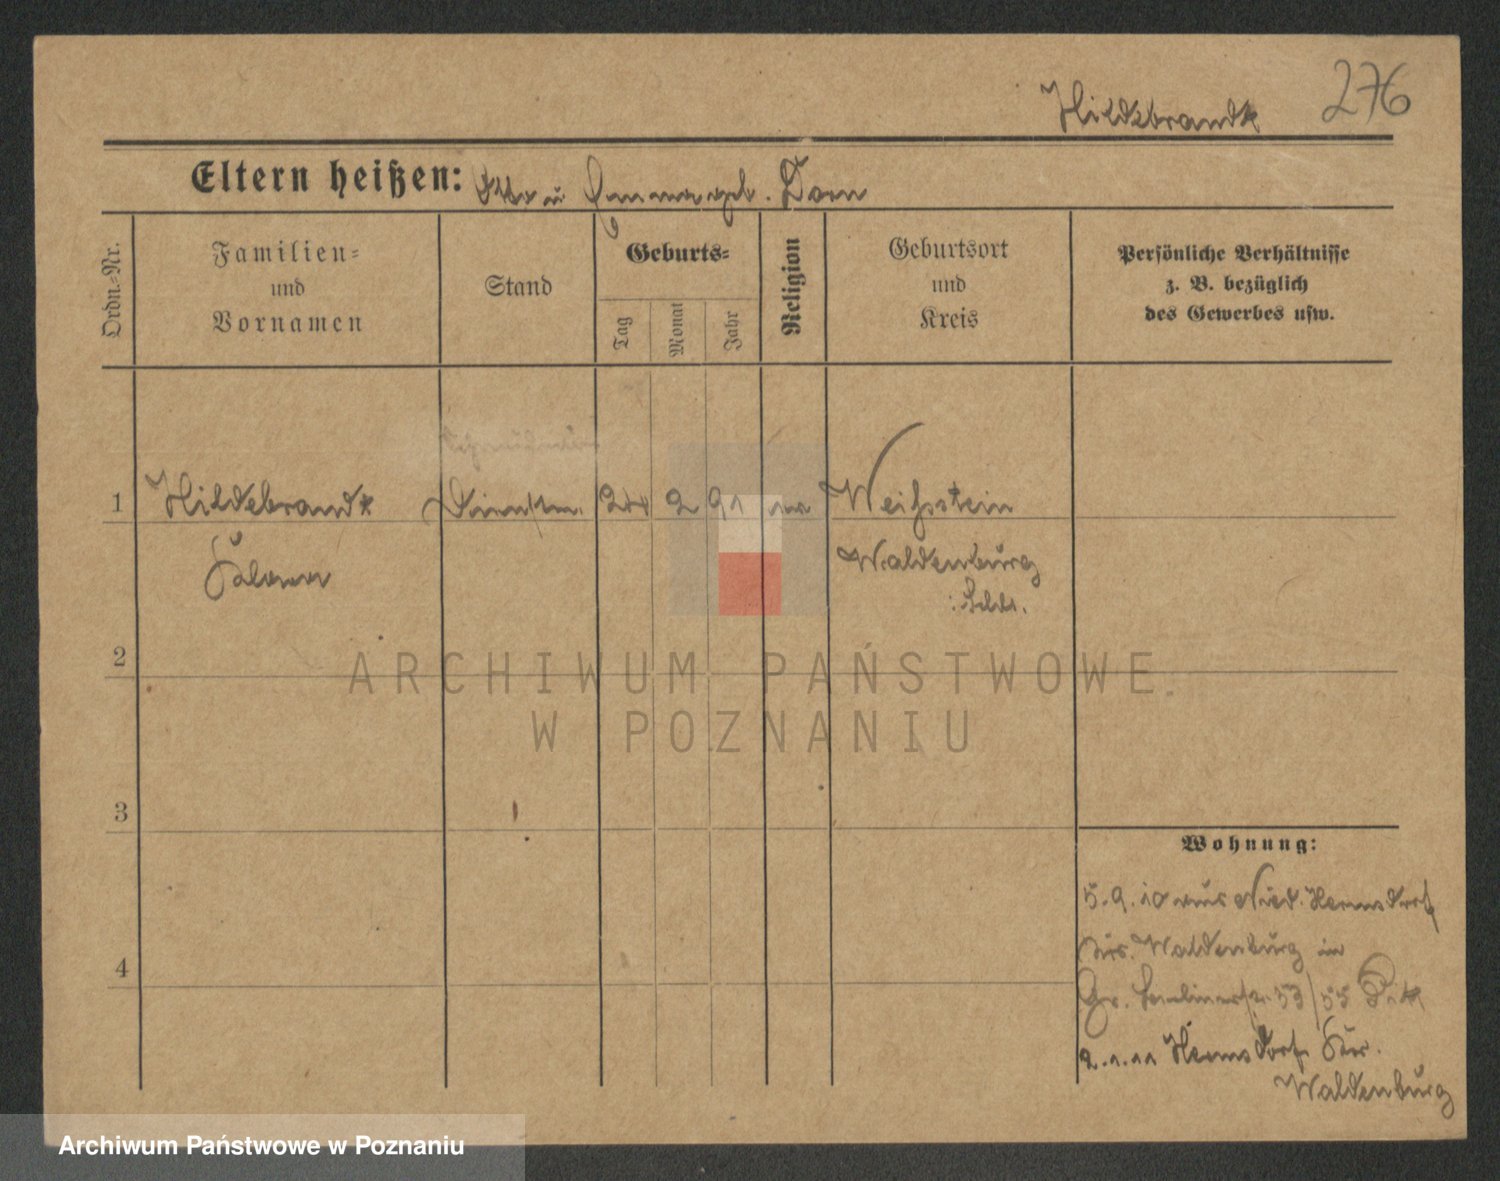 Hildebrandt 276
Eltern heißen: Otto u Emma geb. Dorn
Ordn.-Nr.
Familien-
und
Vornamen
Stand
Geburts-
Tag
Monat
Jahr
Religion
Geburtsort
und
Kreis
Persönliche Verhältnisse
z. B. bezüglich
des Gewerbes usw.
1 Hildebrandt 24 2 91 Weißstein
Waldenburg
2
3
4
ARCHIWUM PAŃSTWOWE
W POZNANIU
Wohnung:
5.9.10 aus Nied. Hermsdorf
Krs. Waldenburg in
Gr. Berlinerstr. 53/55
2.1.11 Hermsdorf Kr.
Waldenburg
Archiwum Państwowe w Poznaniu